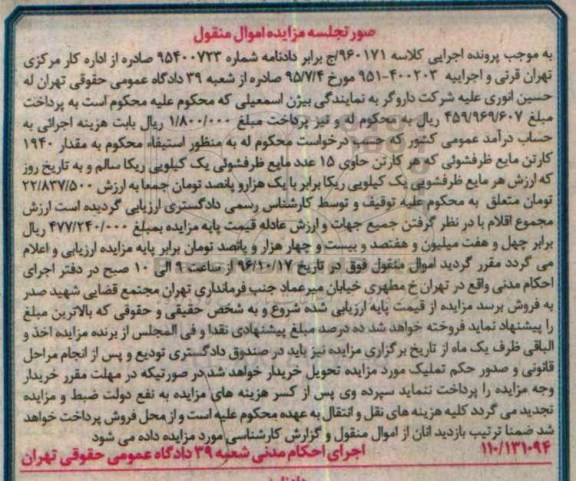 صورتجلسه مزایده اموال منقول
به موجب پرونده اجرایی کلاسه ۹۶۰۱۷۱/ج برابر دادنامه شماره ۹۵۴۰۰۷۲۳ صادره از اداره کار مرکزی
تهران قرنی و اجراییه ۴۰۰۲۰۳-۹۵۱ مورخ ۹۵/۷/۴ صادره از شعبه ۳۹ دادگاه عمومی حقوقی تهران له
حسین انوری علیه شرکت داروگر به نمایندگی بیژن اسمعیلی که محکوم علیه محکوم است به پرداخت
مبلغ ۴۵۹/۹۶۹/۶۰۷ ریال به محکوم له و نیز پرداخت مبلغ ۱/۸۰۰/۰۰۰ ریال بابت هزینه اجرائی به
حساب درآمد عمومی کشور که حسب درخواست محکوم له به منظور استیفاء محکوم به مقدار ۱۹۴۰
کارتن مایع ظرفشوئی که هر کارتن حاوی ۱۵ عدد مایع ظرفشوئی یک کیلویی ریکا سالم و به تاریخ روز
که ارزش هر مایع ظرفشویی یک کیلویی ریکا برابر با یک هزار و پانصد تومان جمعا به ارزش ۲۲/۸۳۷/۵۰۰
تومان متعلق به محکوم علیه توقیف و توسط کارشناس رسمی دادگستری ارزیابی گردیده است ارزش
مجموع اقلام با در نظر گرفتن جمیع جهات و ارزش عادله قیمت پایه مزایده بمبلغ ۴۷۷/۲۴۰/۰۰۰ ریال
برابر چهل و هفت میلیون و هفتصد و بیست و چهار هزار و پانصد تومان برابر پایه مزایده ارزیابی و اعلام
می گردد مقرر گردید اموال منقول فوق در تاریخ ۹۶/۱۰/۱۷ از ساعت ۹ الی ۱۰ صبح در دفتر اجرای
احکام مدنی واقع در تهران خ مطهری خیابان میرعماد جنب فرمانداری تهران مجتمع قضایی شهید صدر
به فروش برسد مزایده از قیمت پایه ارزیابی شده شروع و به شخص حقیقی و حقوقی که بالاترین مبلغ
را پیشنهاد نماید فروخته خواهد شد ده درصد مبلغ پیشنهادی نقدا و فی المجلس از برنده مزایده اخذ و
الباقی ظرف یک ماه از تاریخ برگزاری مزایده نیز باید در صندوق دادگستری تودیع و پس از انجام مراحل
قانونی و صدور حکم تملیک مورد مزایده تحویل خریدار خواهد شد در صورتیکه در مهلت مقرر خریدار
وجه مزایده را پرداخت ننماید سپرده وی پس از کسر هزینه های مزایده به نفع دولت ضبط و مزایده
تجدید می گردد کلیه هزینه های نقل و انتقال به عهده محکوم علیه است و از محل فروش پرداخت خواهد
شد ضمنا ترتیب بازدید انان از اموال منقول و گزارش کارشناسی مورد مزایده داده می شود
۱۱۰/۱۳۱۰۹۴ اجرای احکام مدنی شعبه ۳۹ دادگاه عمومی حقوقی تهران